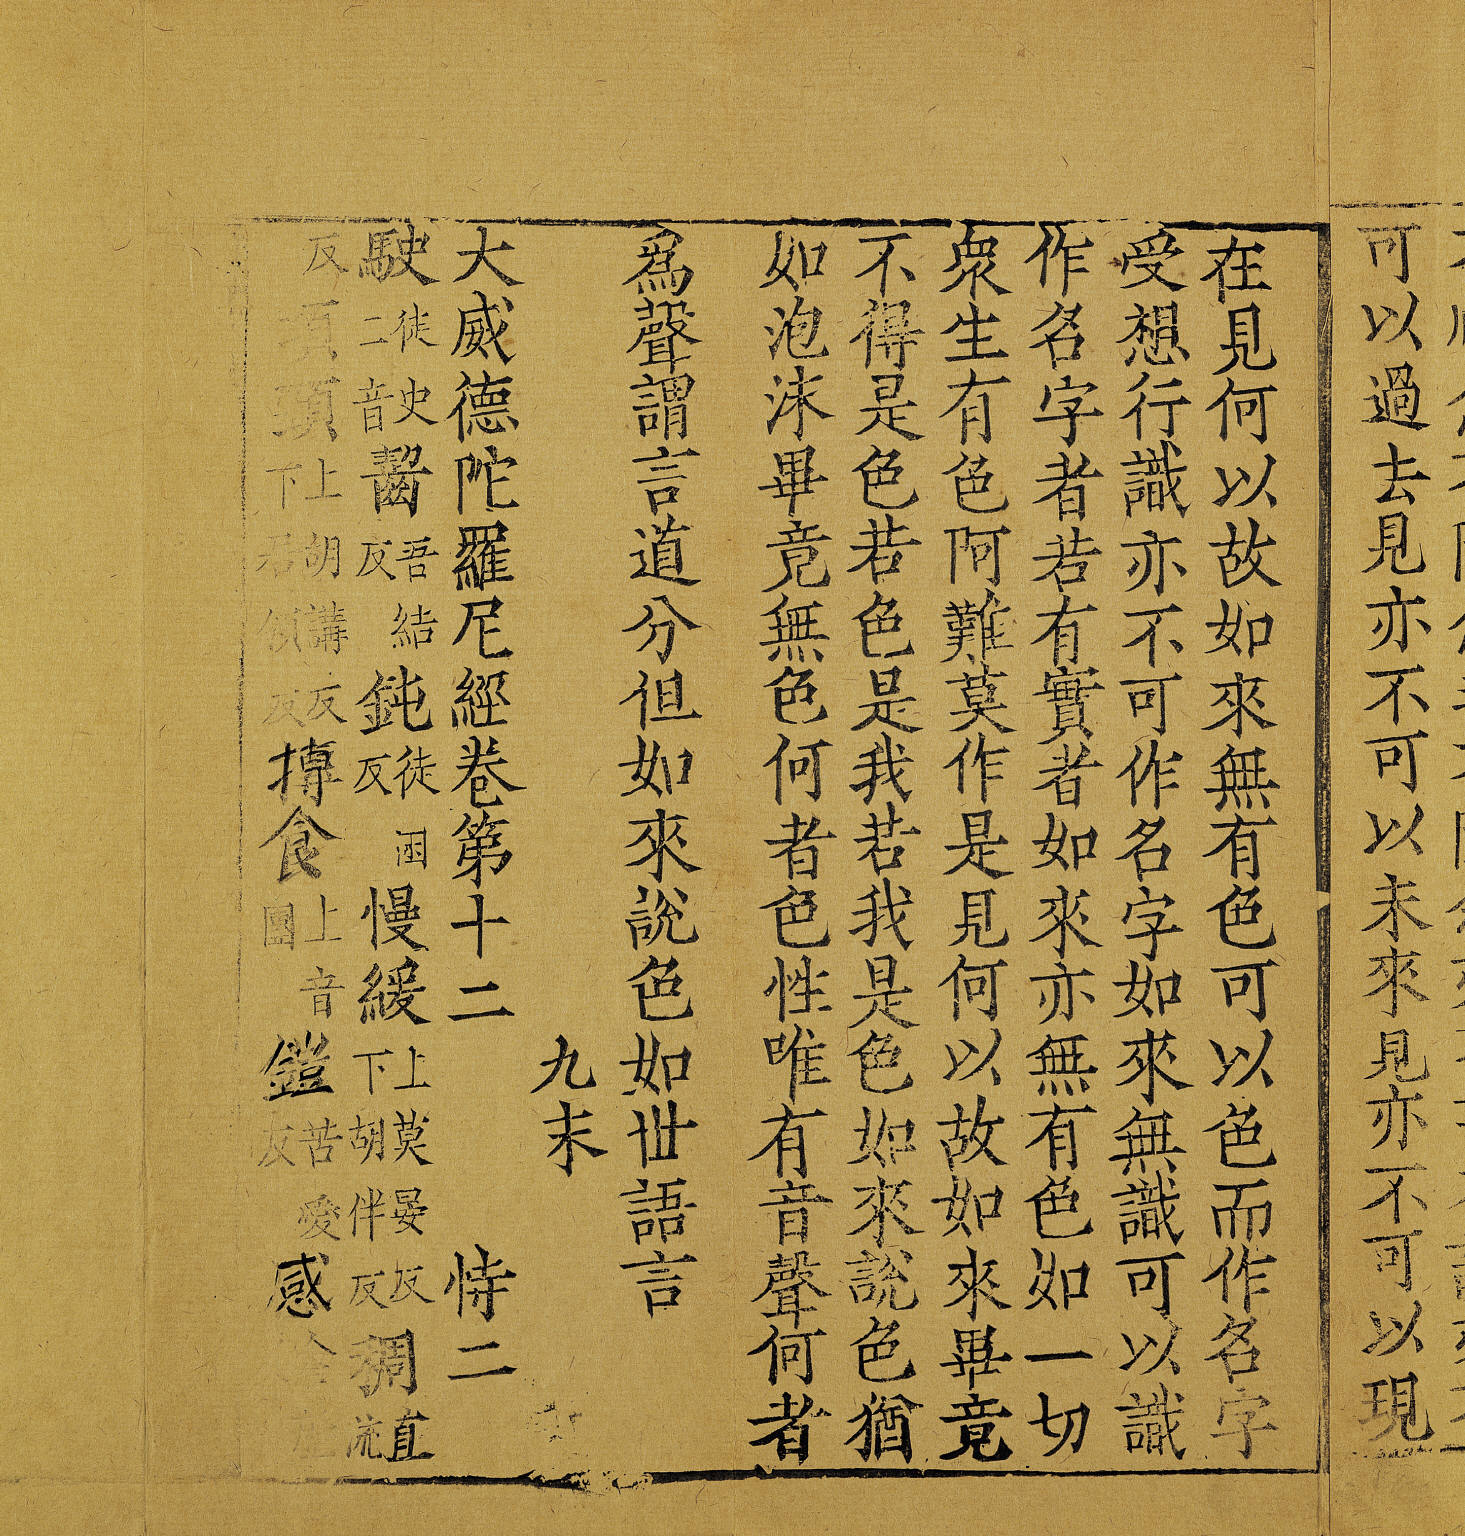 可以過去見亦不可以未來見亦不可以現
在見何以故如來無有色可以色而作名字
受想行識亦不可作名字如來無識可以識
作名字者若有實者如來亦無有色如一切
衆生有色阿難莫作是見何以故如來畢竟
不得是色若色是我若我是色如來說色猶
如泡沫畢竟無色何者色性唯有音聲何者
爲聲謂言道分但如來說色如世語言
九末
大威德陀羅尼經卷第十二 恃二
駛徒史二音齧吾結反鈍徒困反慢緩上莫晏反下胡伴反稠直流
反項頸上胡講反下 反摶食上音團鎧苦愛反感